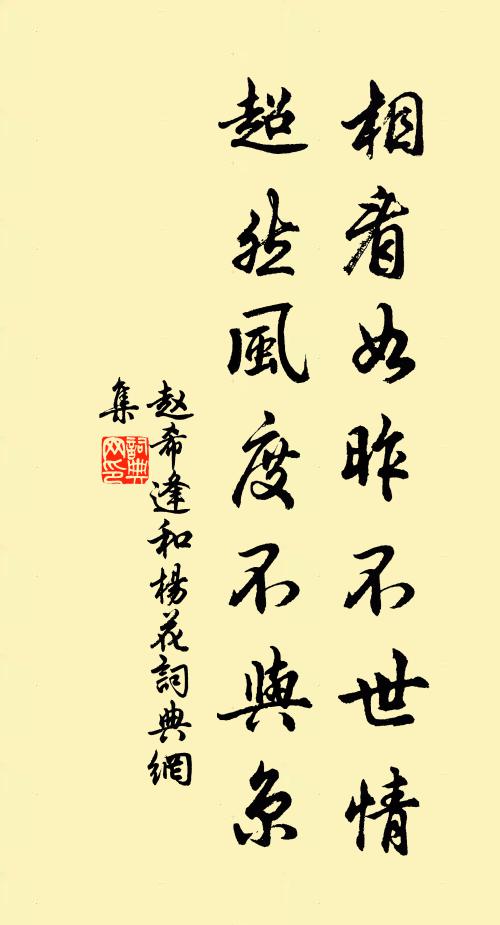 相看如昨不世情
超然風度不與京
赵希逢和楊花詞典網
集
詞典
网印